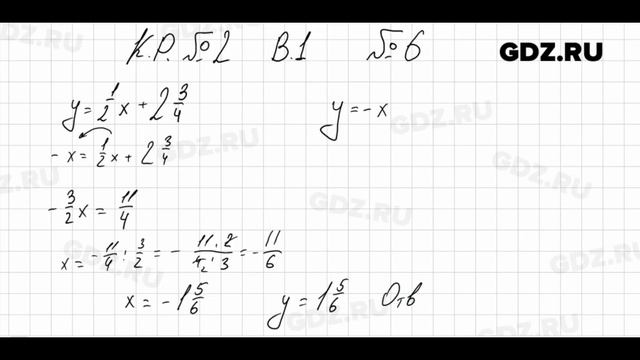 К.Р. №2 В.1 №6 GDZ.RU
y = 1/2 x + 2 3/4 y = -x
- x = 1/2 x + 2 3/4
- 3/2 x = 11/4
x = - 11/4 : 3/2 = - 11·2/4₂·3 = - 11/6
x = -1 5/6 y = 1 5/6 Отв
GDZ.RU
GDZ.RU
GDZ.RU
GDZ.RU
GDZ.RU
GDZ.RU